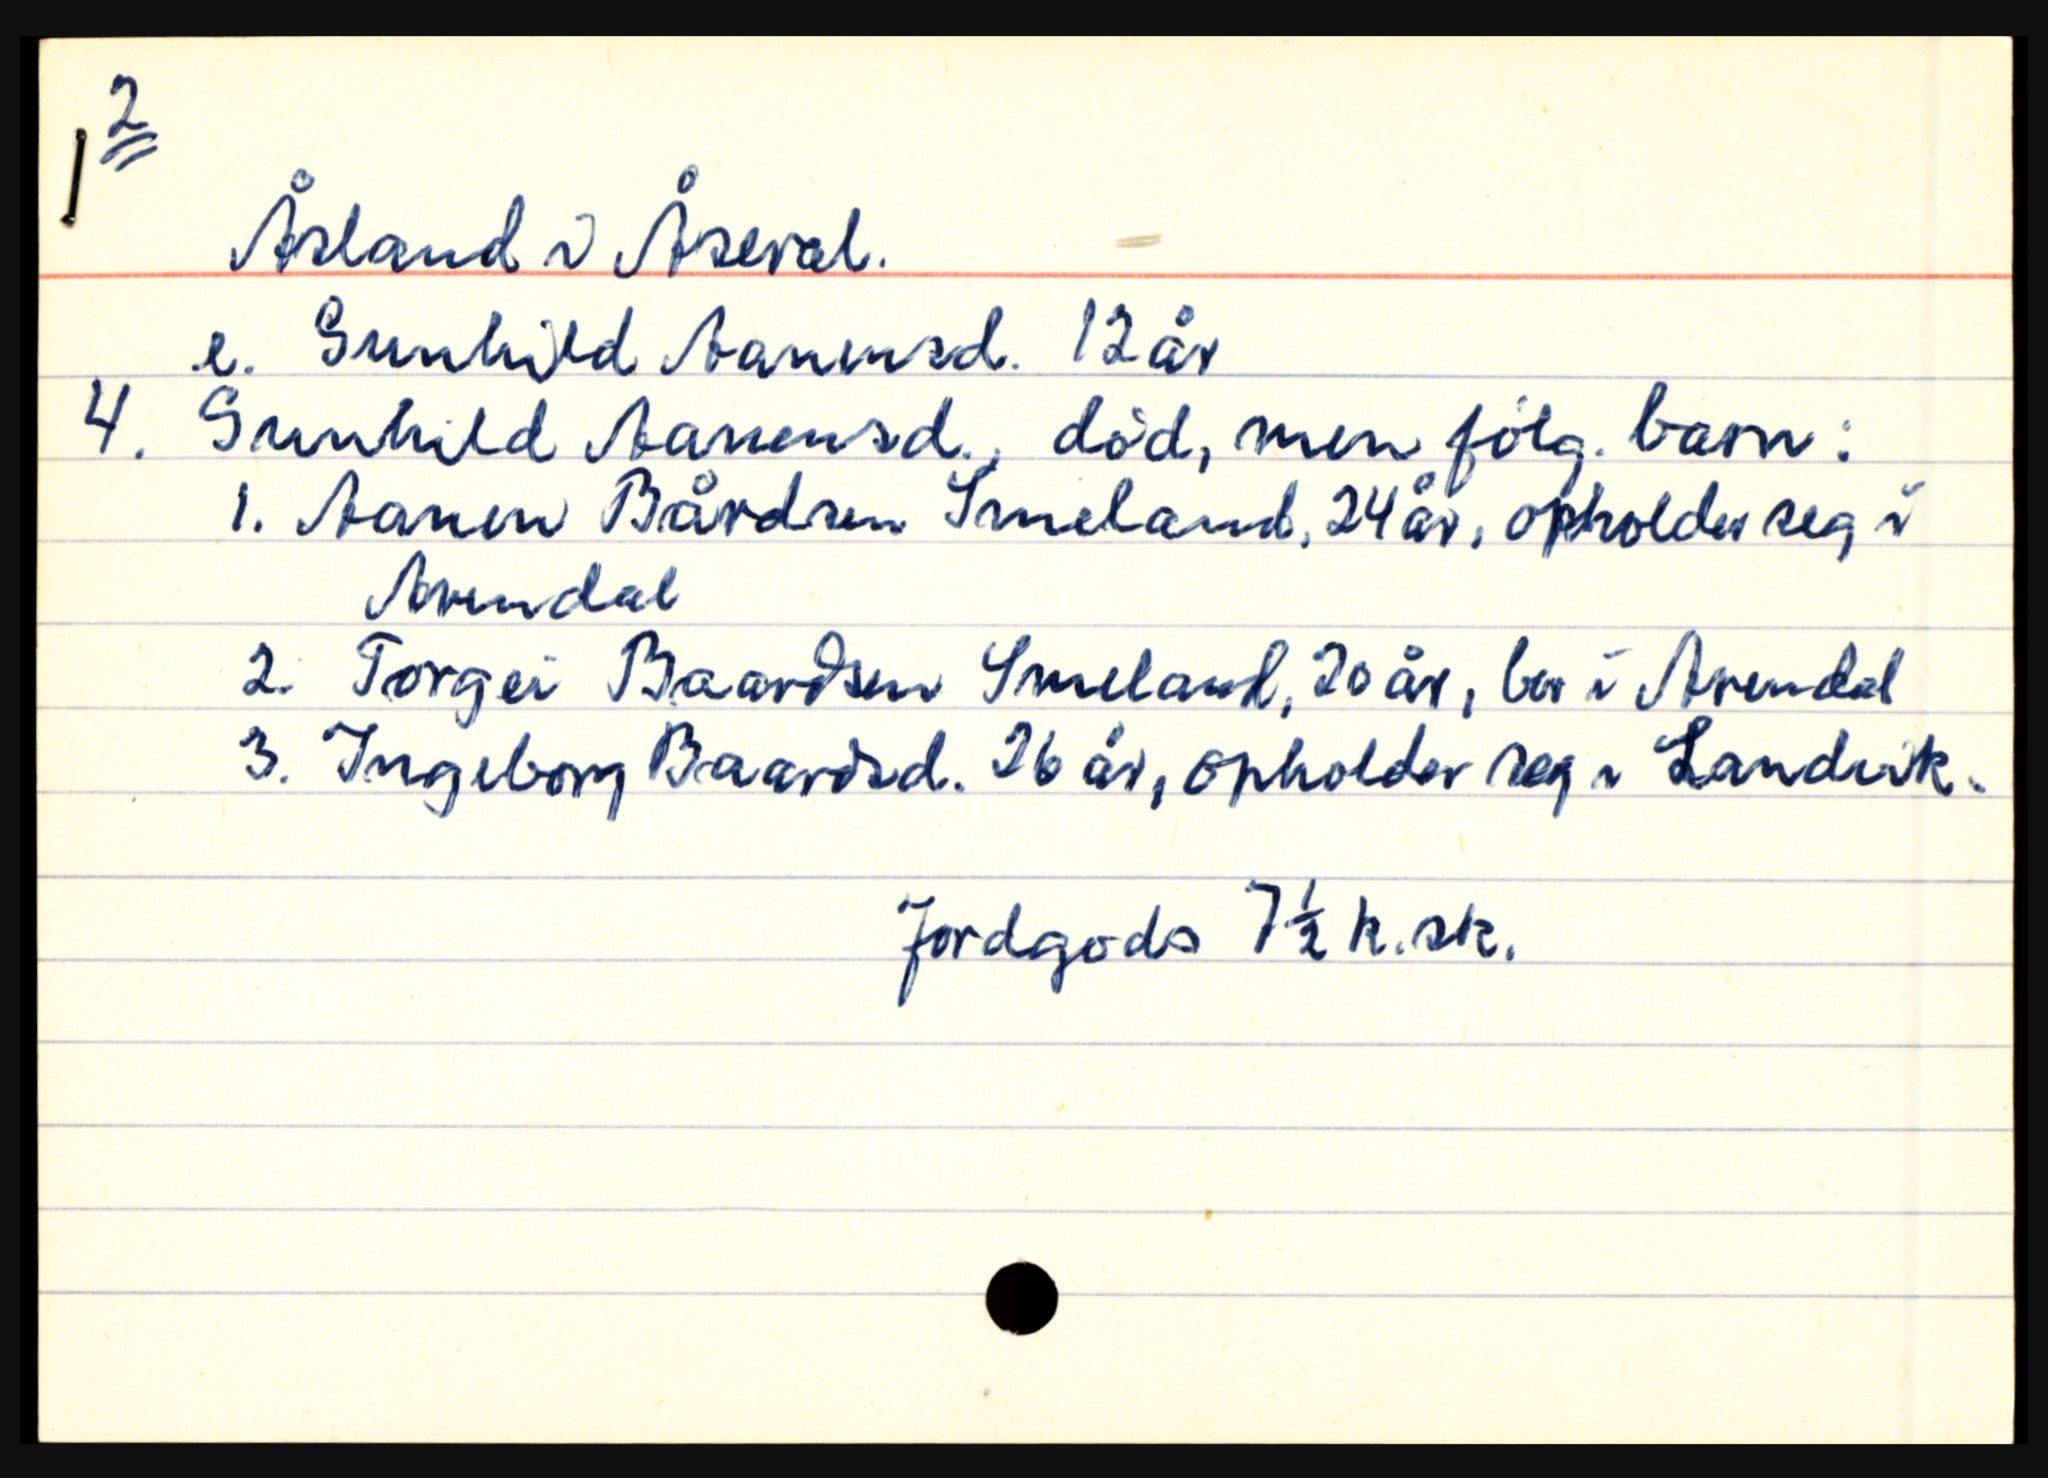 2
Åsland i Åseral.
e. Gunhild Aanensd. 12 år
4. Gunhild Aanensd., död, men fölg. barn:
1. Aanen Bårdsen Smeland, 24 år, opholder seg i
Arendal
2. Torgei Baardsen Smeland, 20 år, bor i Arendal
3. Ingeborg Baardsd. 26 år, opholder seg i Landvik.
Jordgods 7 1/2 k.sk.